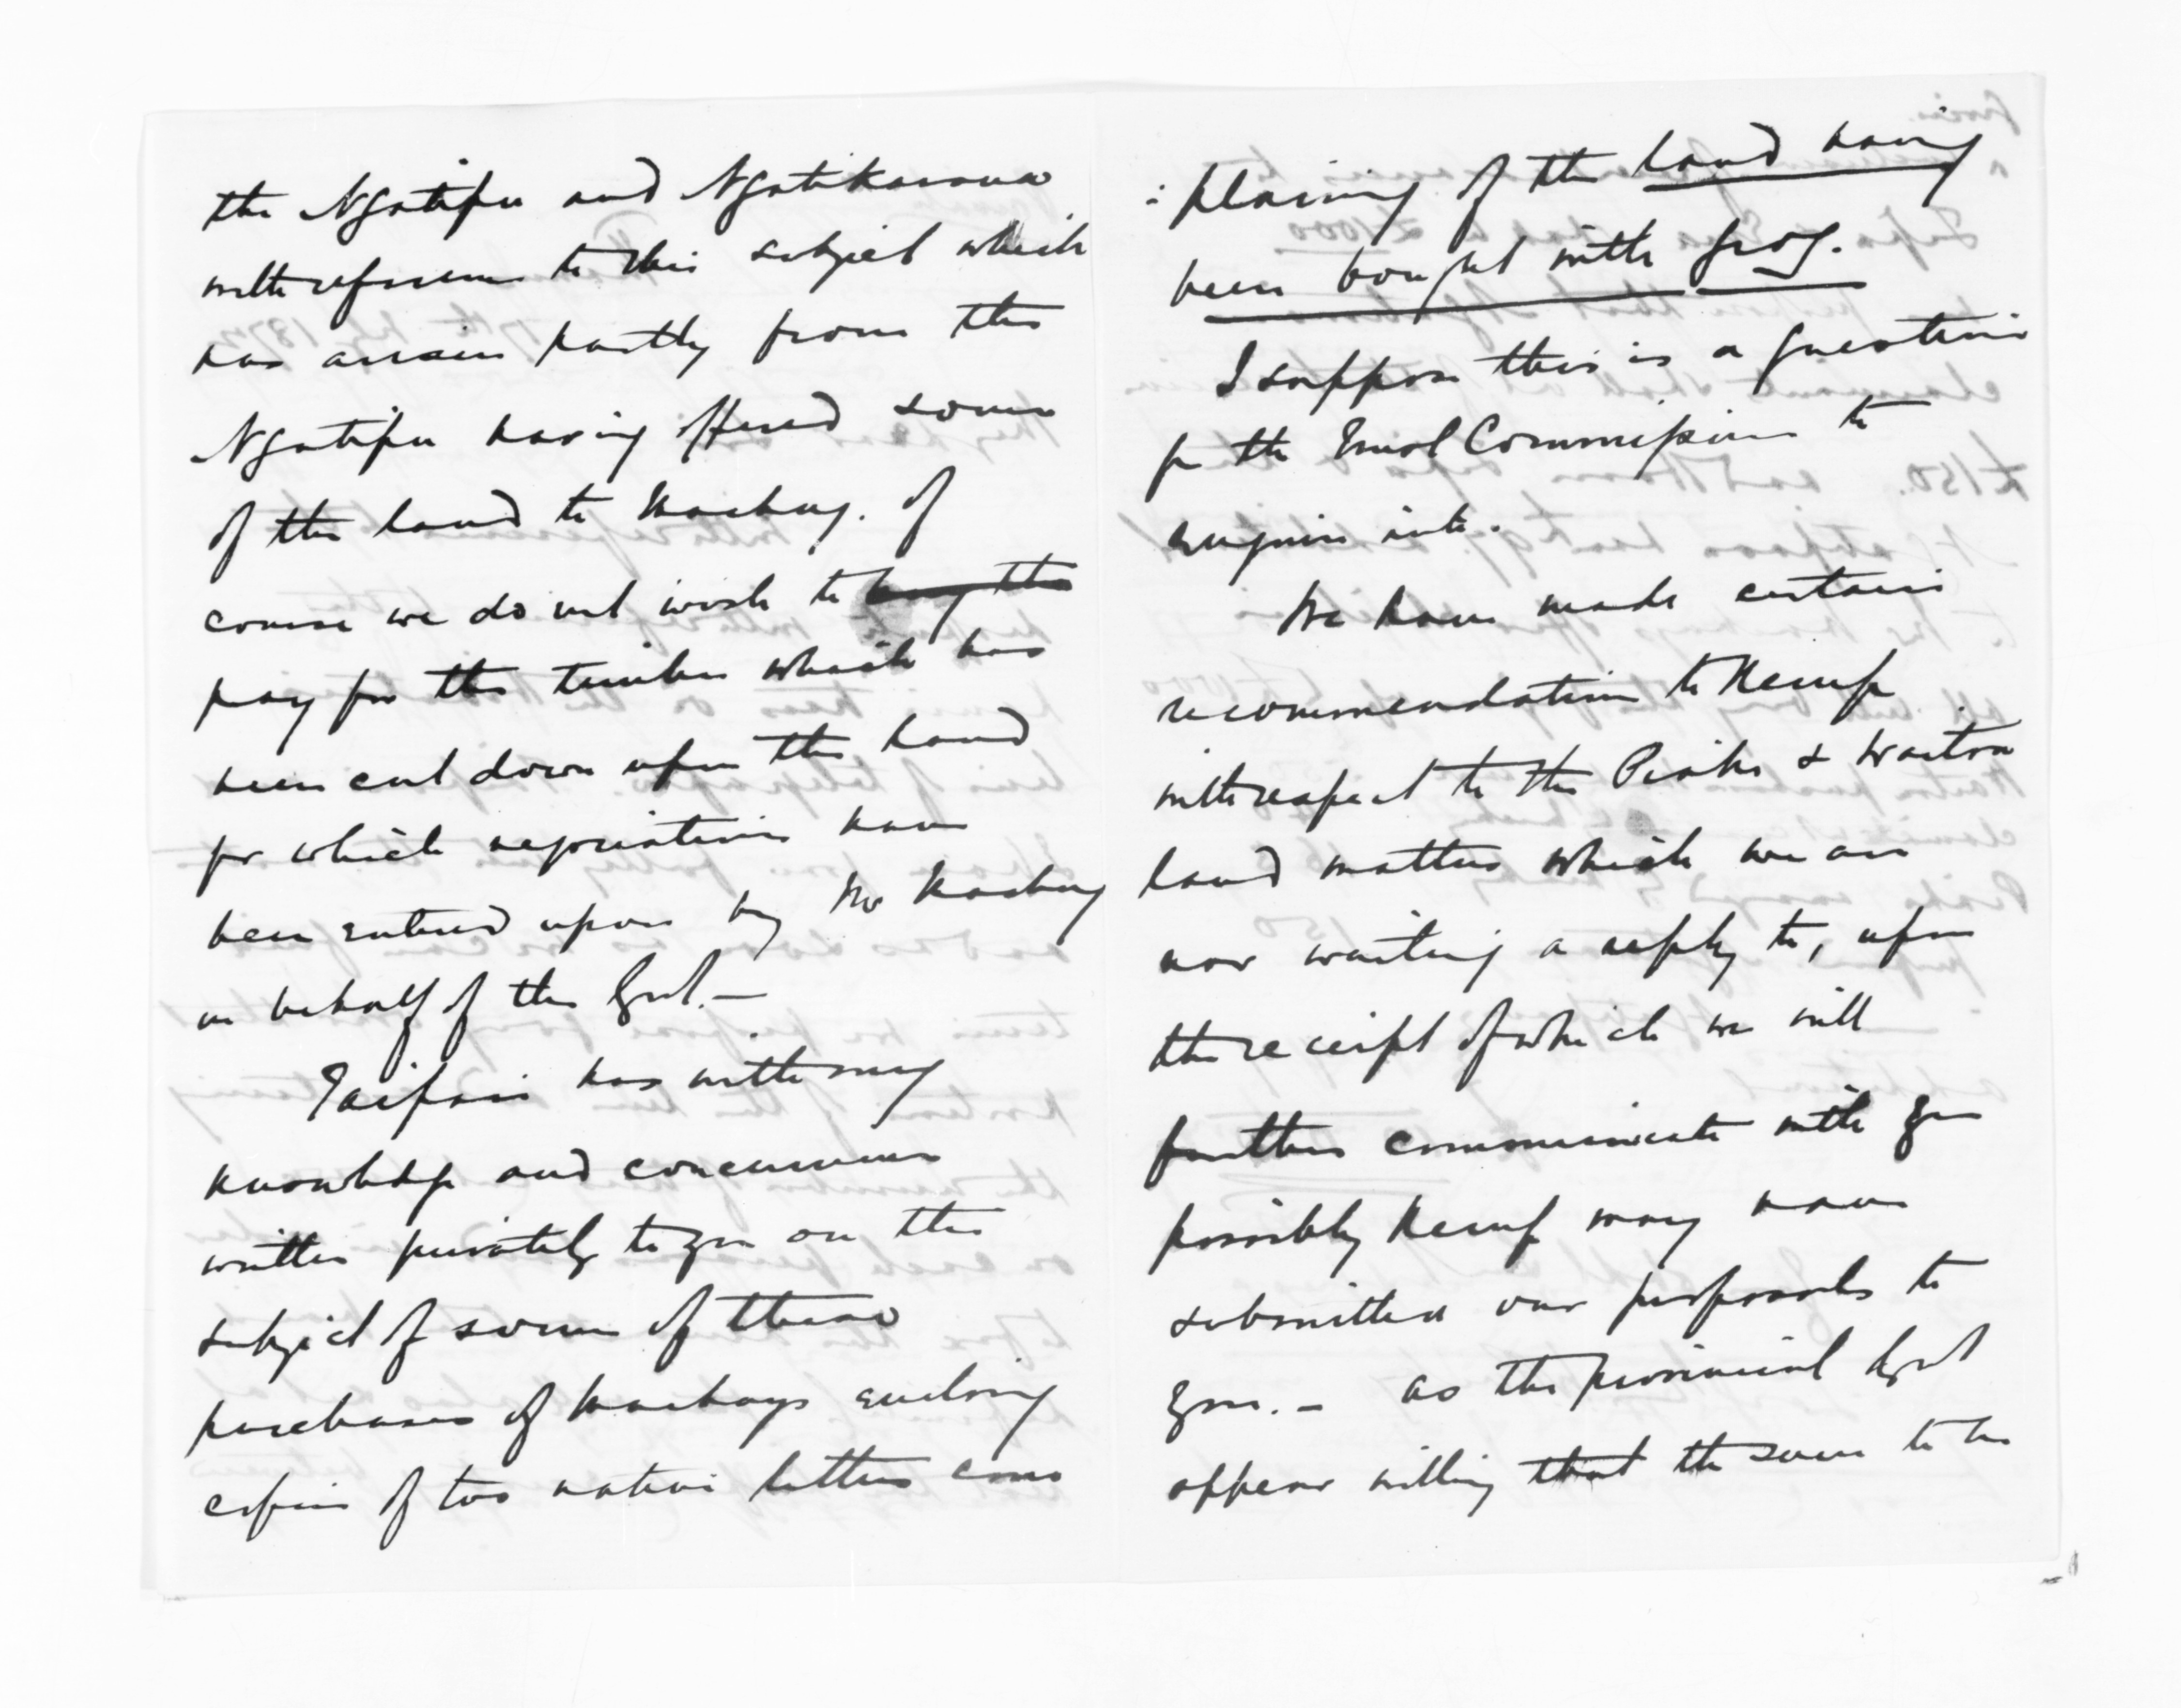 the Ngatipu and Ngatikaraua
with reference to this subject which
has arisen partly from the
Ngatipu having offered some
of the land to Mackay. of
course we do not wish to buy the
pay for the timber which has
been cut down upon the land
for which negociations have
been entered upon by Mr Mackay
on behalf of the Govt. —
Taipari has with my
knowledge and concurrence
written privately to you on the
subject of some of these
purchases of Mackays enclosing
copies of two native letters com
: plaining of the land having
been bought with grog.
I suppose this is a question
for the Trust Commissioner to
enquire into.
We have made certain
recommendations to Kemp
with respect to the Piako & Waitoa
land matters which we are
now waiting a reply to, upon
the receipt of which we will
further communicate with you
possibly Kemp may have
submitted our proposals to
you. — as the provincial Govt
appear willing that the sum to be